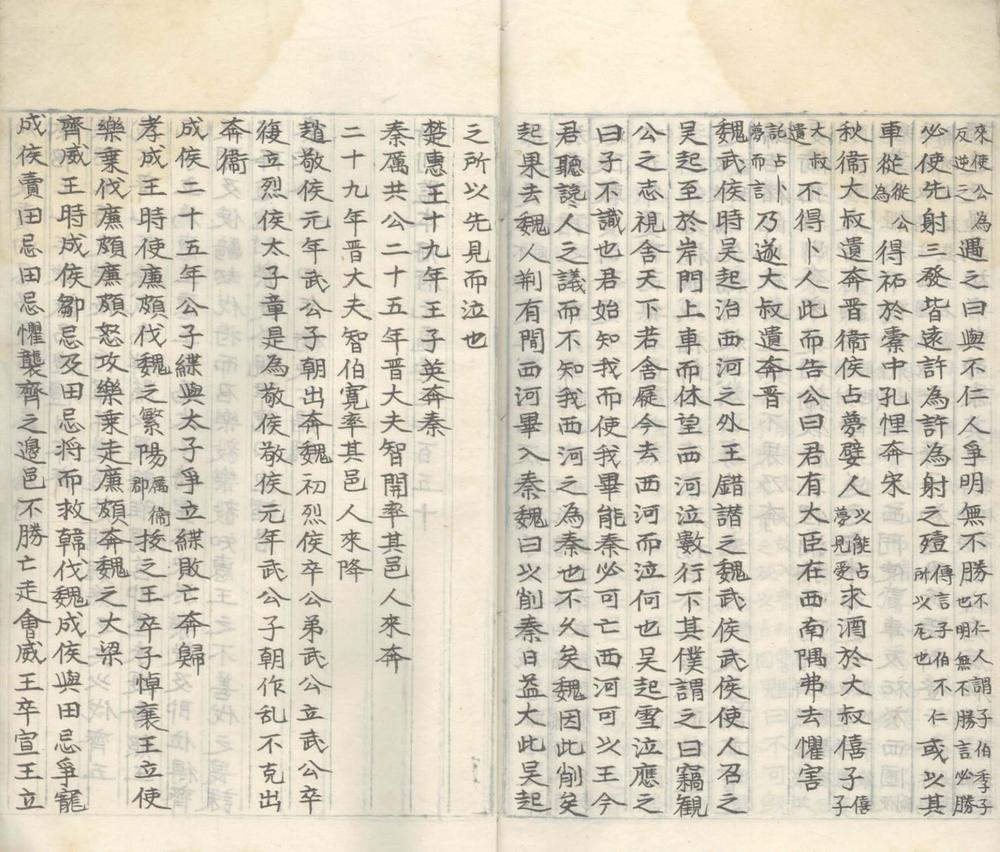 來使公為反逆之遇之曰與不仁人爭明無不勝不仁人謂子伯季子也明無不勝言必勝
必使先射三發皆遠許為許為射之殪傳言子伯不仁所以死也或以其
車從從公為得祏於橐中孔悝奔宋
秋衛大叔遺奔晉衛侯占夢嬖人以能占夢見愛求酒於大叔僖子僖子
大叔遺不得卜人此而告公曰君有大臣在西南隅弗去懼害
託占卜夢而言乃遂大叔遺奔晉
魏武侯時吳起治西河之外王錯譖之魏武侯武侯使人召之
吳起至於岸門上車而休望西河泣數行下其僕謂之曰竊觀
公之志視舍天下若舍屣今去西河而泣何也吳起雪泣應之
曰子不識也君始知我而使我畢能秦必可亡西河可以王今
君聽讒人之議而不知我西河之為秦也不久矣魏因此削矣
起果去魏入荆有間西河畢入秦魏曰以削秦日益大此吳起
之所以先見而泣也
楚惠王十九年王子英奔秦
秦厲共公二十五年晉大夫智開率其邑人來奔
二十九年晉大夫智伯寬率其邑人來降
趙敬侯元年武公子朝出奔魏初烈侯卒公弟武公立武公卒
復立烈侯太子章是為敬侯敬侯元年武公子朝作乱不克出
奔衛
成侯二十五年公子緤與太子爭立緤敗亡奔歸
孝成王時使廉頗伐魏之繁陽属衛郡拔之王卒子悼襄王立使
樂乗伐廉頗廉頗怒攻樂乗走廉頗奔魏之大梁
齊威王時成侯鄒忌及田忌将而救韓伐魏成侯與田忌爭寵
成侯賣田忌田忌懼襲齊之邊邑不勝亡走會威王卒宣王立